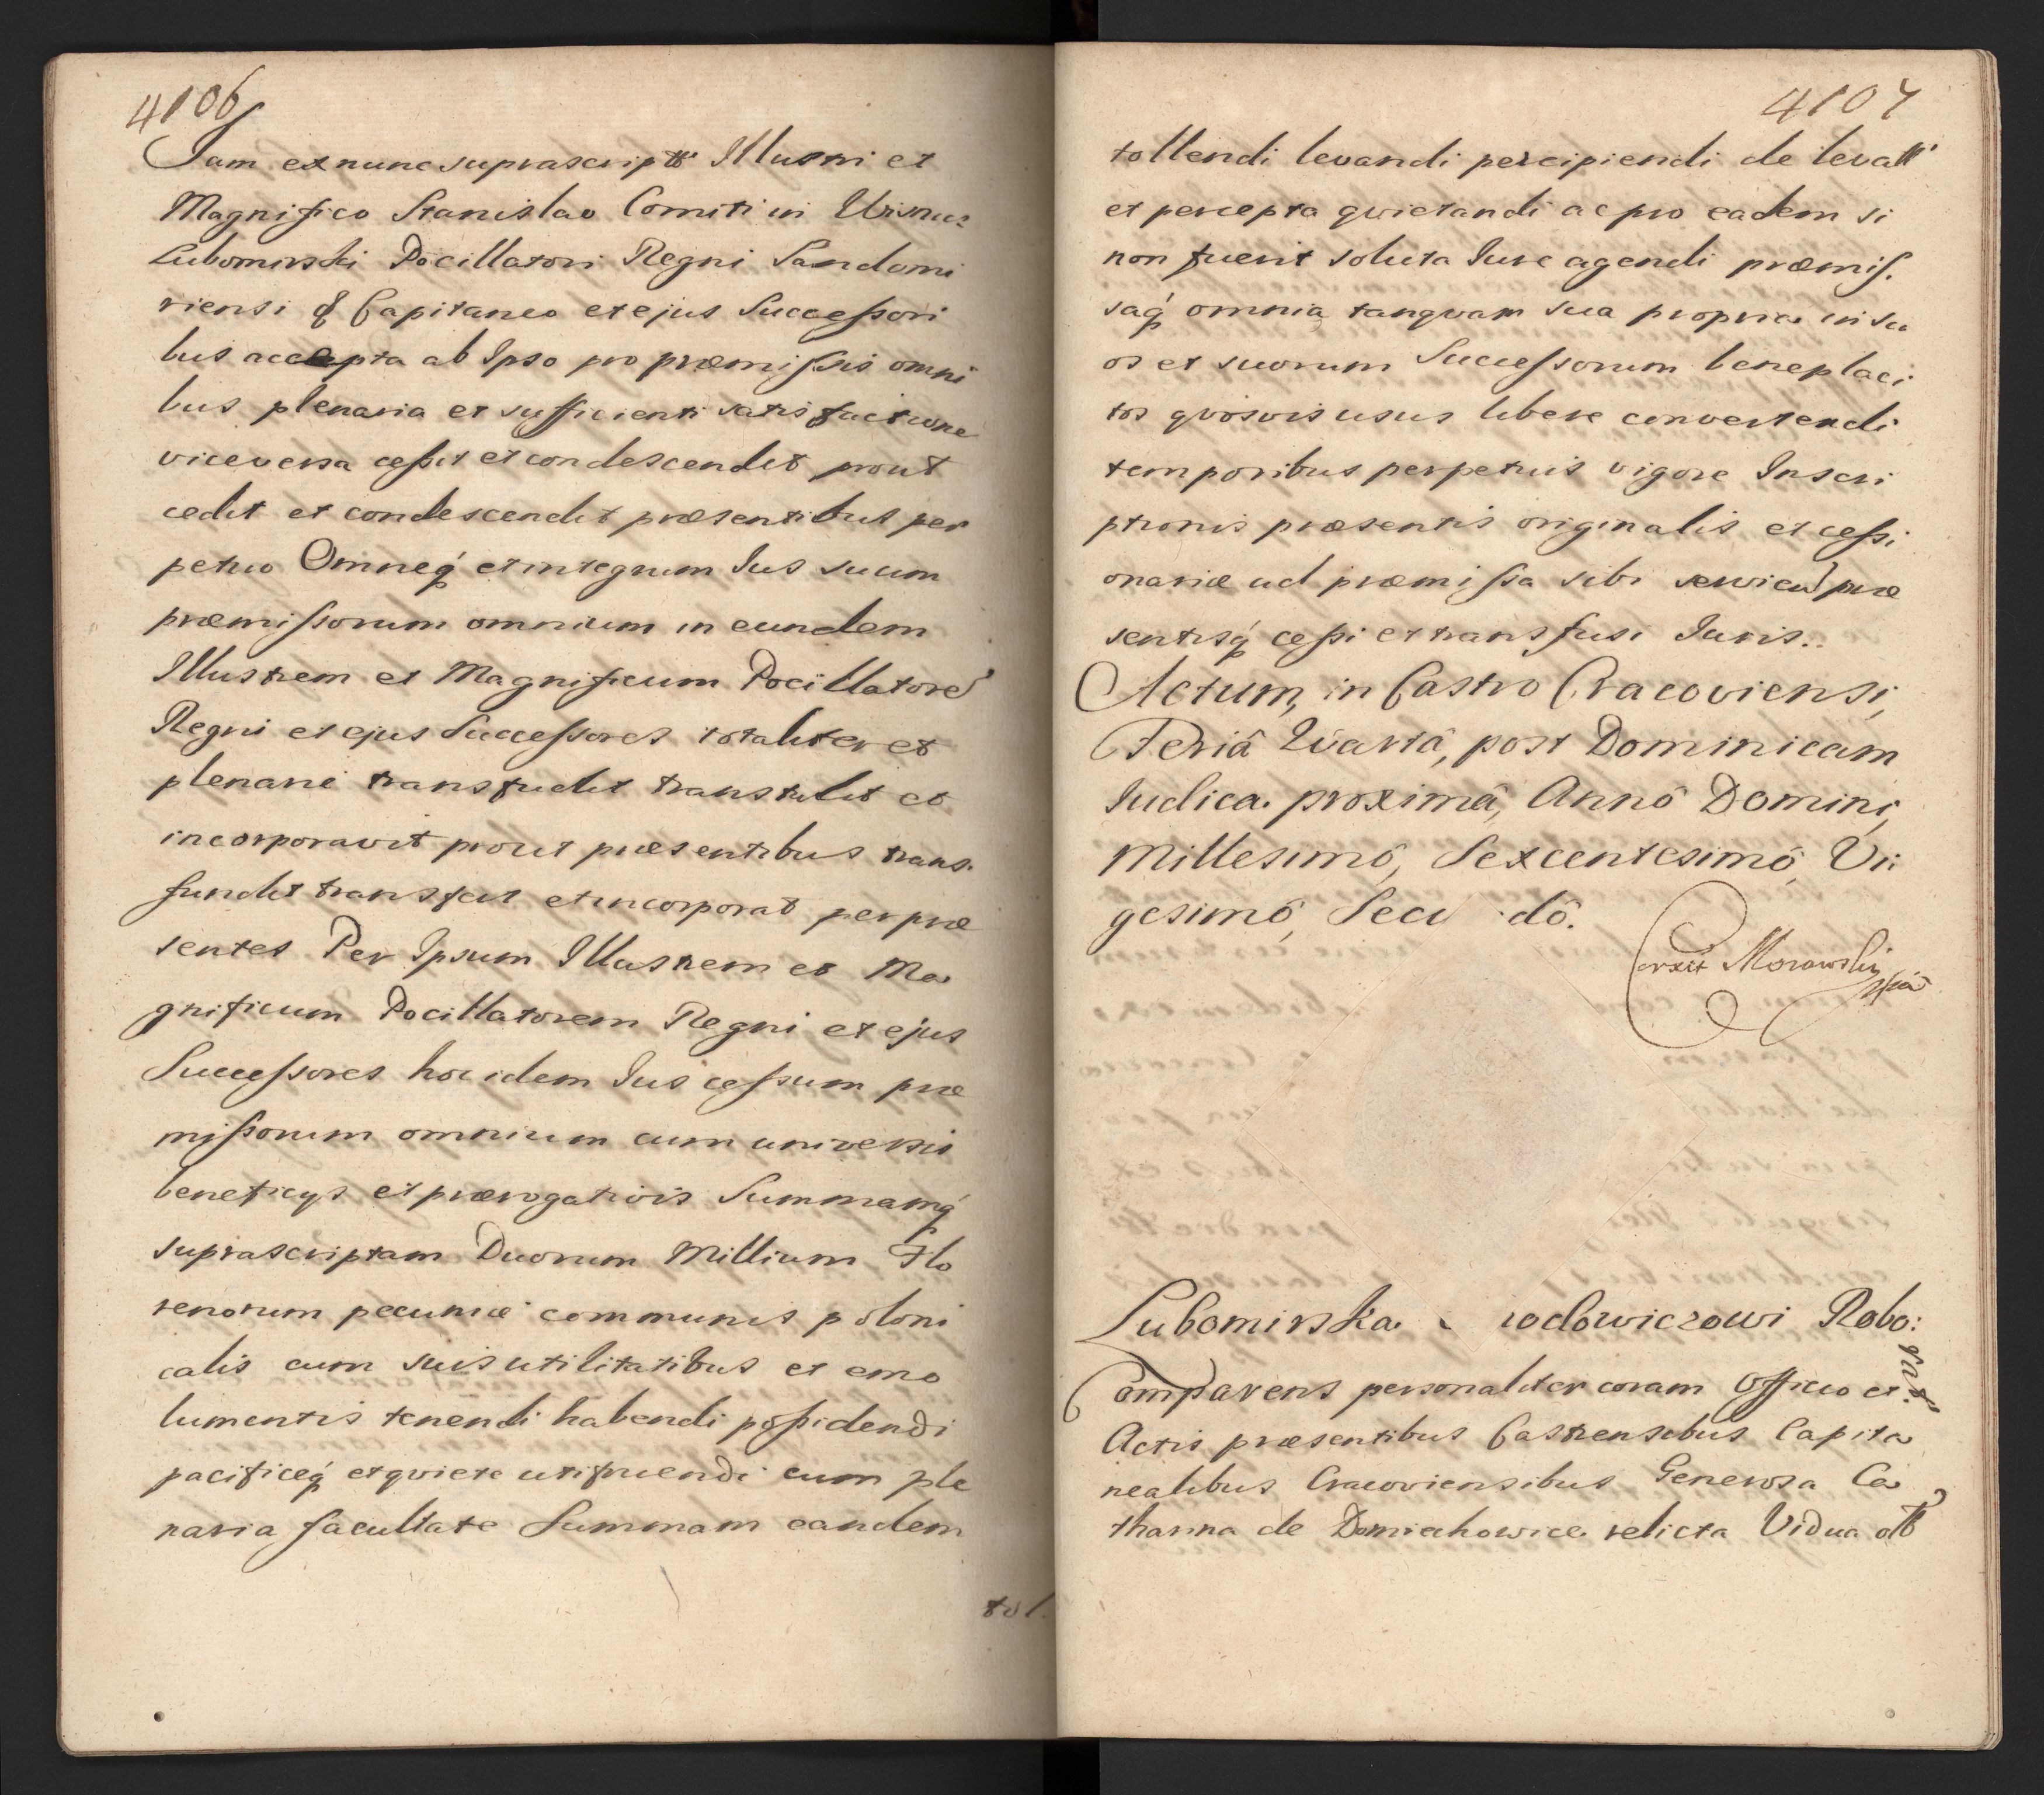 4106
Jam ex nunc suprascriptt Illustri et
Magnifico Stanislao Comiti in Visnic:
Lubomirski Pocillatori Regni Sandomi
riensi & Capitaneo et ejus Successori
bus accepta ab Ipso pro præmissis omni
bus plenaria et sufficienti satisfactione
viceversa cessit et condescendit prout
cedit et condescendit præsentibus per
petuo Omneq́ et integrum Jus suum
præmissorum omnium in eundem
Illustrem et Magnificum Pocillatore͂
Regni et ejus Successores totaliter et
plenarie transfudit transtulit et
incorporavit prout præsentibus trans.
fundit transfert et incorporat per præ
sentes Per Ipsum Illustrem et Ma
gnificum Pocillatorem Regni et ejus
Successores hoc idem Jus cessum præ
missorum omnium cum universis
beneficys et prærogativis Summamq́
suprascriptam Duorum Millium Flo
renorum pecuniæ communis poloni
calis cum suis utilitatibus et emo
lumentis tenendi habendi possidendi
pacificeq́ et qviete utifruendi cum ple
naria facultate Summam eandem
tol.
4107
tollendi levandi percipiendi de levatt
et percepta qvietandi ac pro eadem si
non fuerit soluta Jure agendi præmis.
saq́ omnia tanqvam sua propria in su
os et suorum Successorum beneplaci
tos qvosvis usus libere convertendi
temporibus perpetuis vigore Inscri
ptionis præsentis originalis et cessi
onariæ ad præmissa sibi servien͂ præ
sentisq́ cessi et transfusi Juris.
Actum, in Castro Cracoviensi,
Feriâ Qvartâ, post Dominicam
Judica proximâ, Annô Domini,
Millesimô, Sexcentesimô, Vi:
gesimô, Secu dô.
Correxit Morawski
mpiâ
Lubomirska odowiczowi Robo:
rat:
Comparens personaliter coram Officio et
Actis præsentibus Castrensibus Capita
nealibus Cracoviensibus Generosa Ca
tharina de Domiechowice relicta Vidua olt